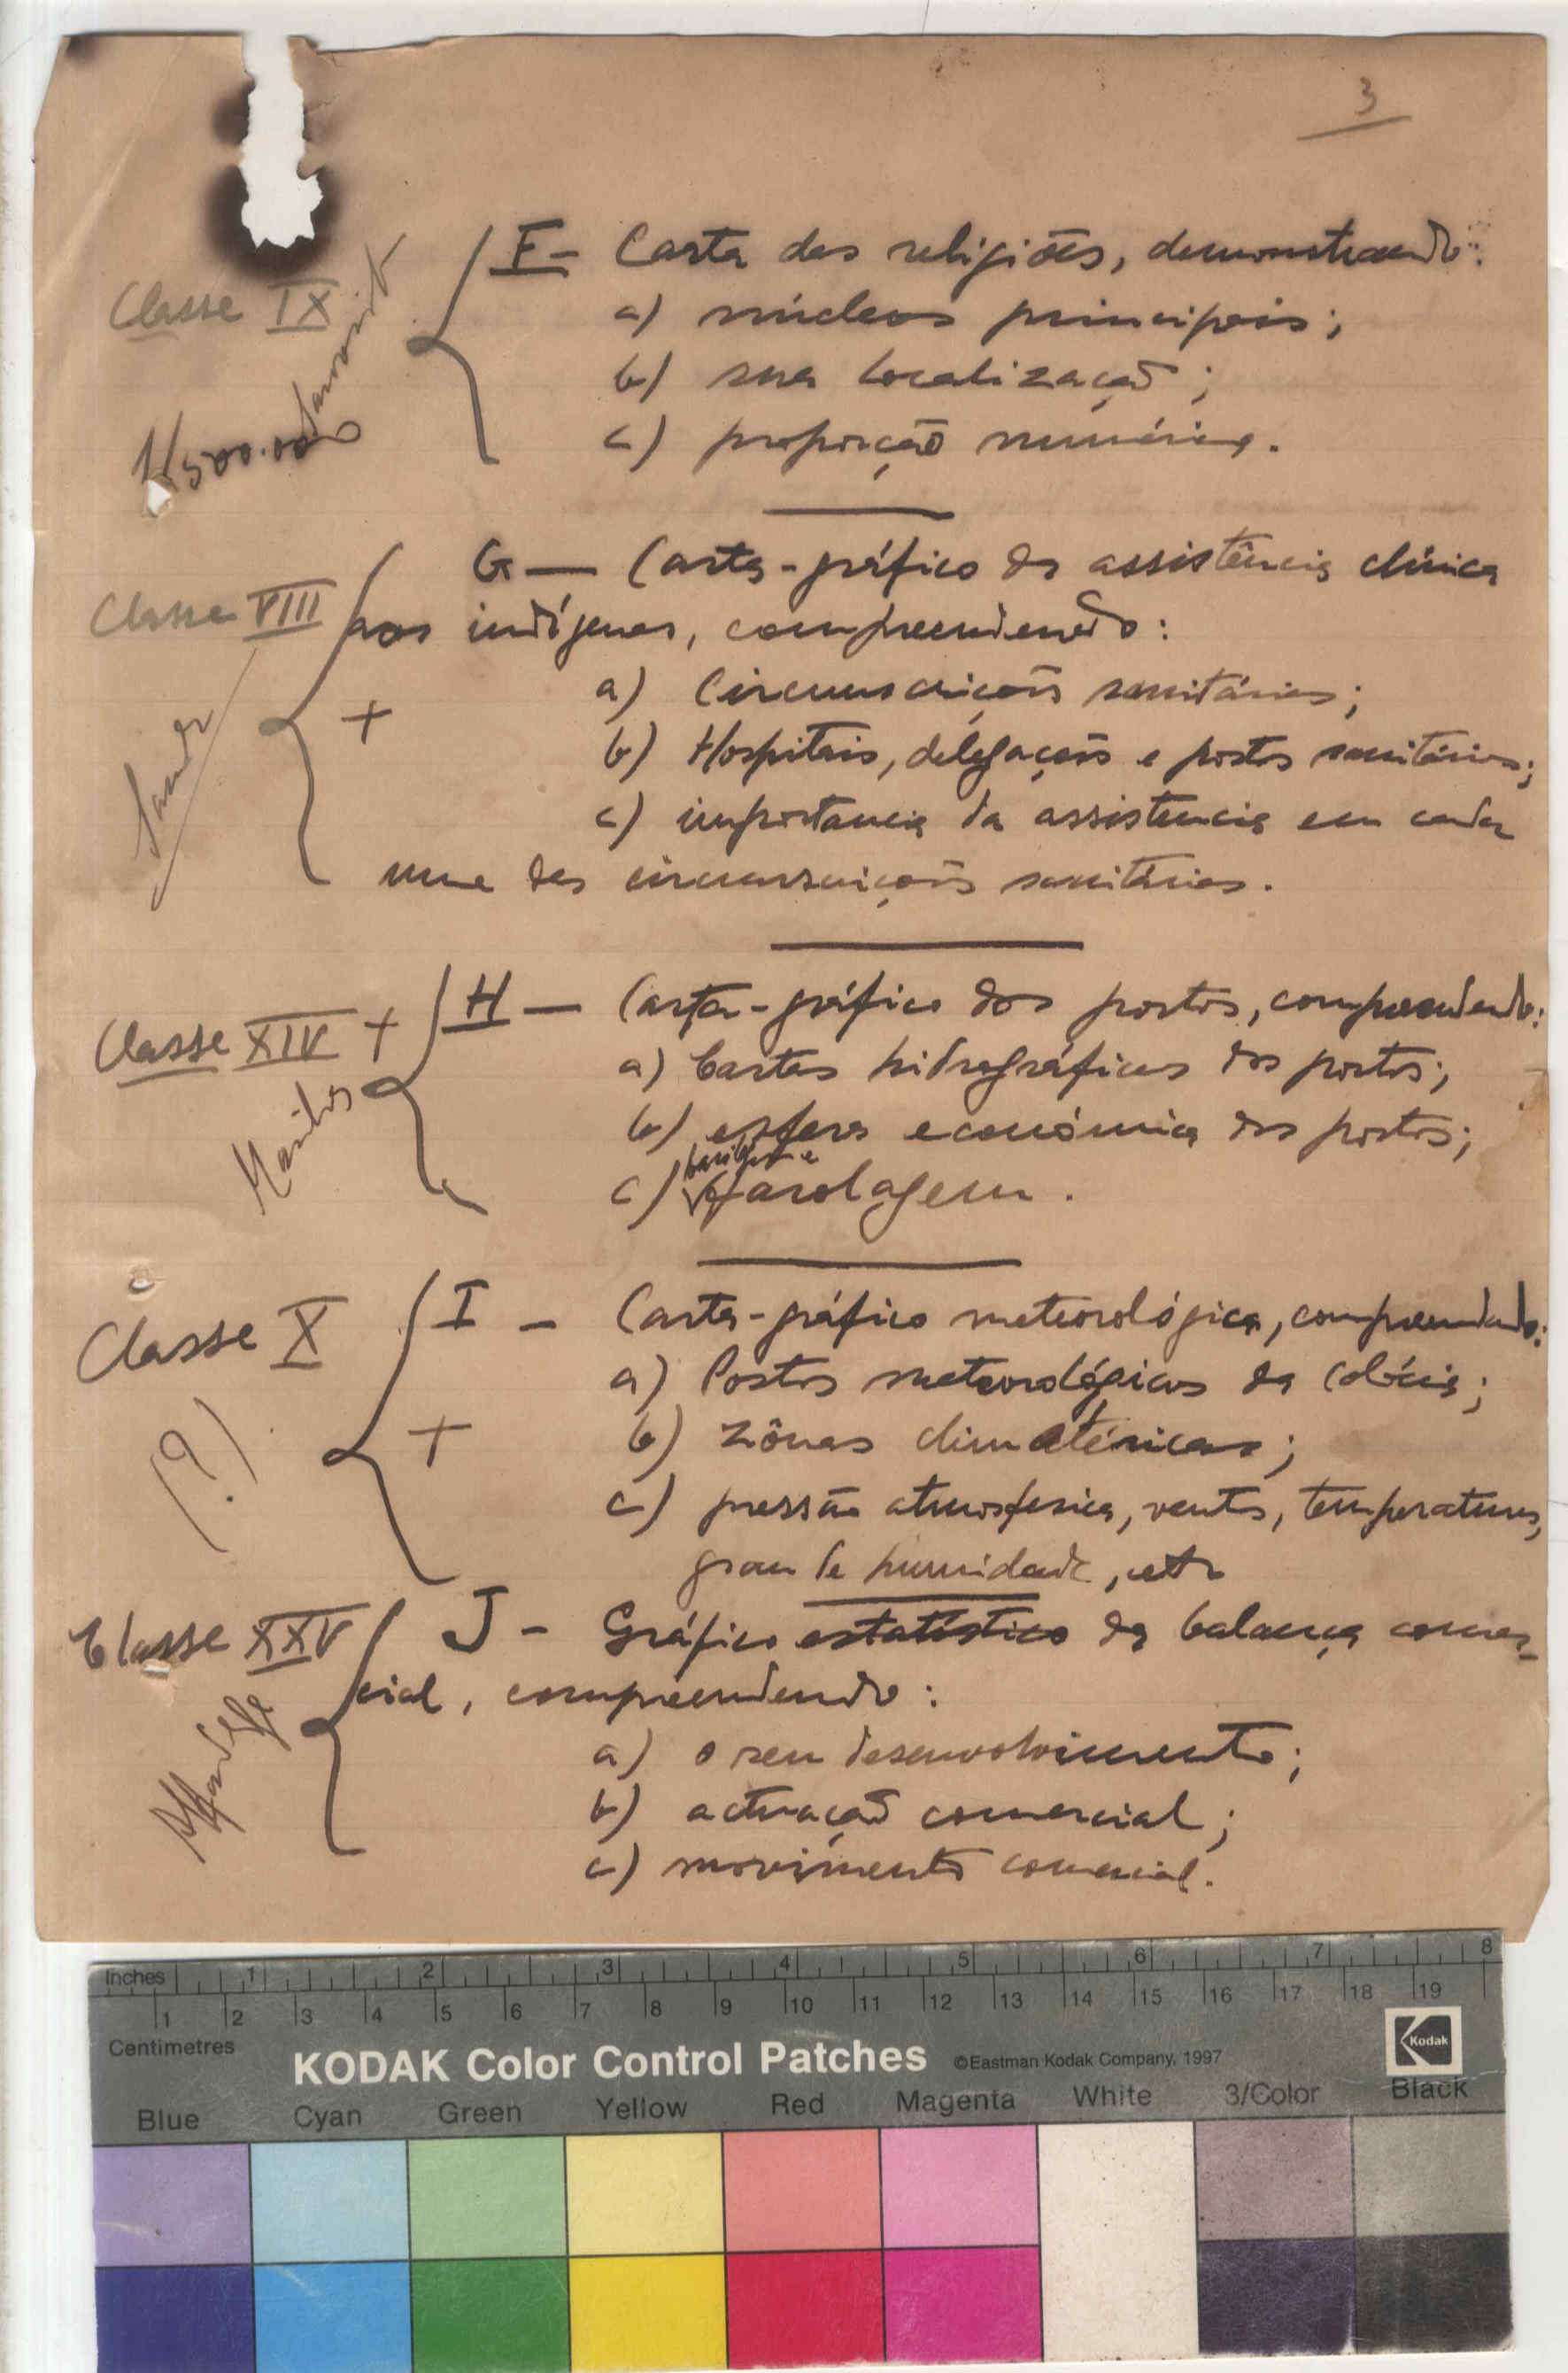 3
F - Carta das religiões, demonstrando:
Classe IX
a) núcleos principais;
b) sua localização;
1/500.000
c) proporção numérica.
G — Carta-gráfico da assistência clínica
Classe VIII
aos indígenas, compreendendo:
a) Circunscrições sanitárias;
+
b) Hospitais, delegações e postos sanitários;
Saude
c) importancia da assistencia em cada
uma das circunscrições sanitárias.
Classe XIV + H — Carta-gráfico dos portos, compreendendo:
a) Cartas hidrográficas dos portos;
b) esfera económica dos portos;
c) farolagem.
Classe X
I - Carta-gráfico meteorológica, compreendendo:
a) Postos meteorológicos da colónia;
+ b) zônas climatéricas;
(?)
c) pressão atmosferica, ventos, temperaturas,
grau de humidade, etc
Classe XXV
J - Gráfico estatístico da balança comer-
cial, compreendendo:
a) o seu desenvolvimento;
b) actuação comercial;
c) movimento comercial.
Inches 1 2 3 4 5 6 7 8
1 2 3 4 5 6 7 8 9 10 11 12 13 14 15 16 17 18 19
Centimetres
KODAK Color Control Patches ©Eastman Kodak Company, 1997 Kodak
Blue Cyan Green Yellow Red Magenta White 3/Color Black